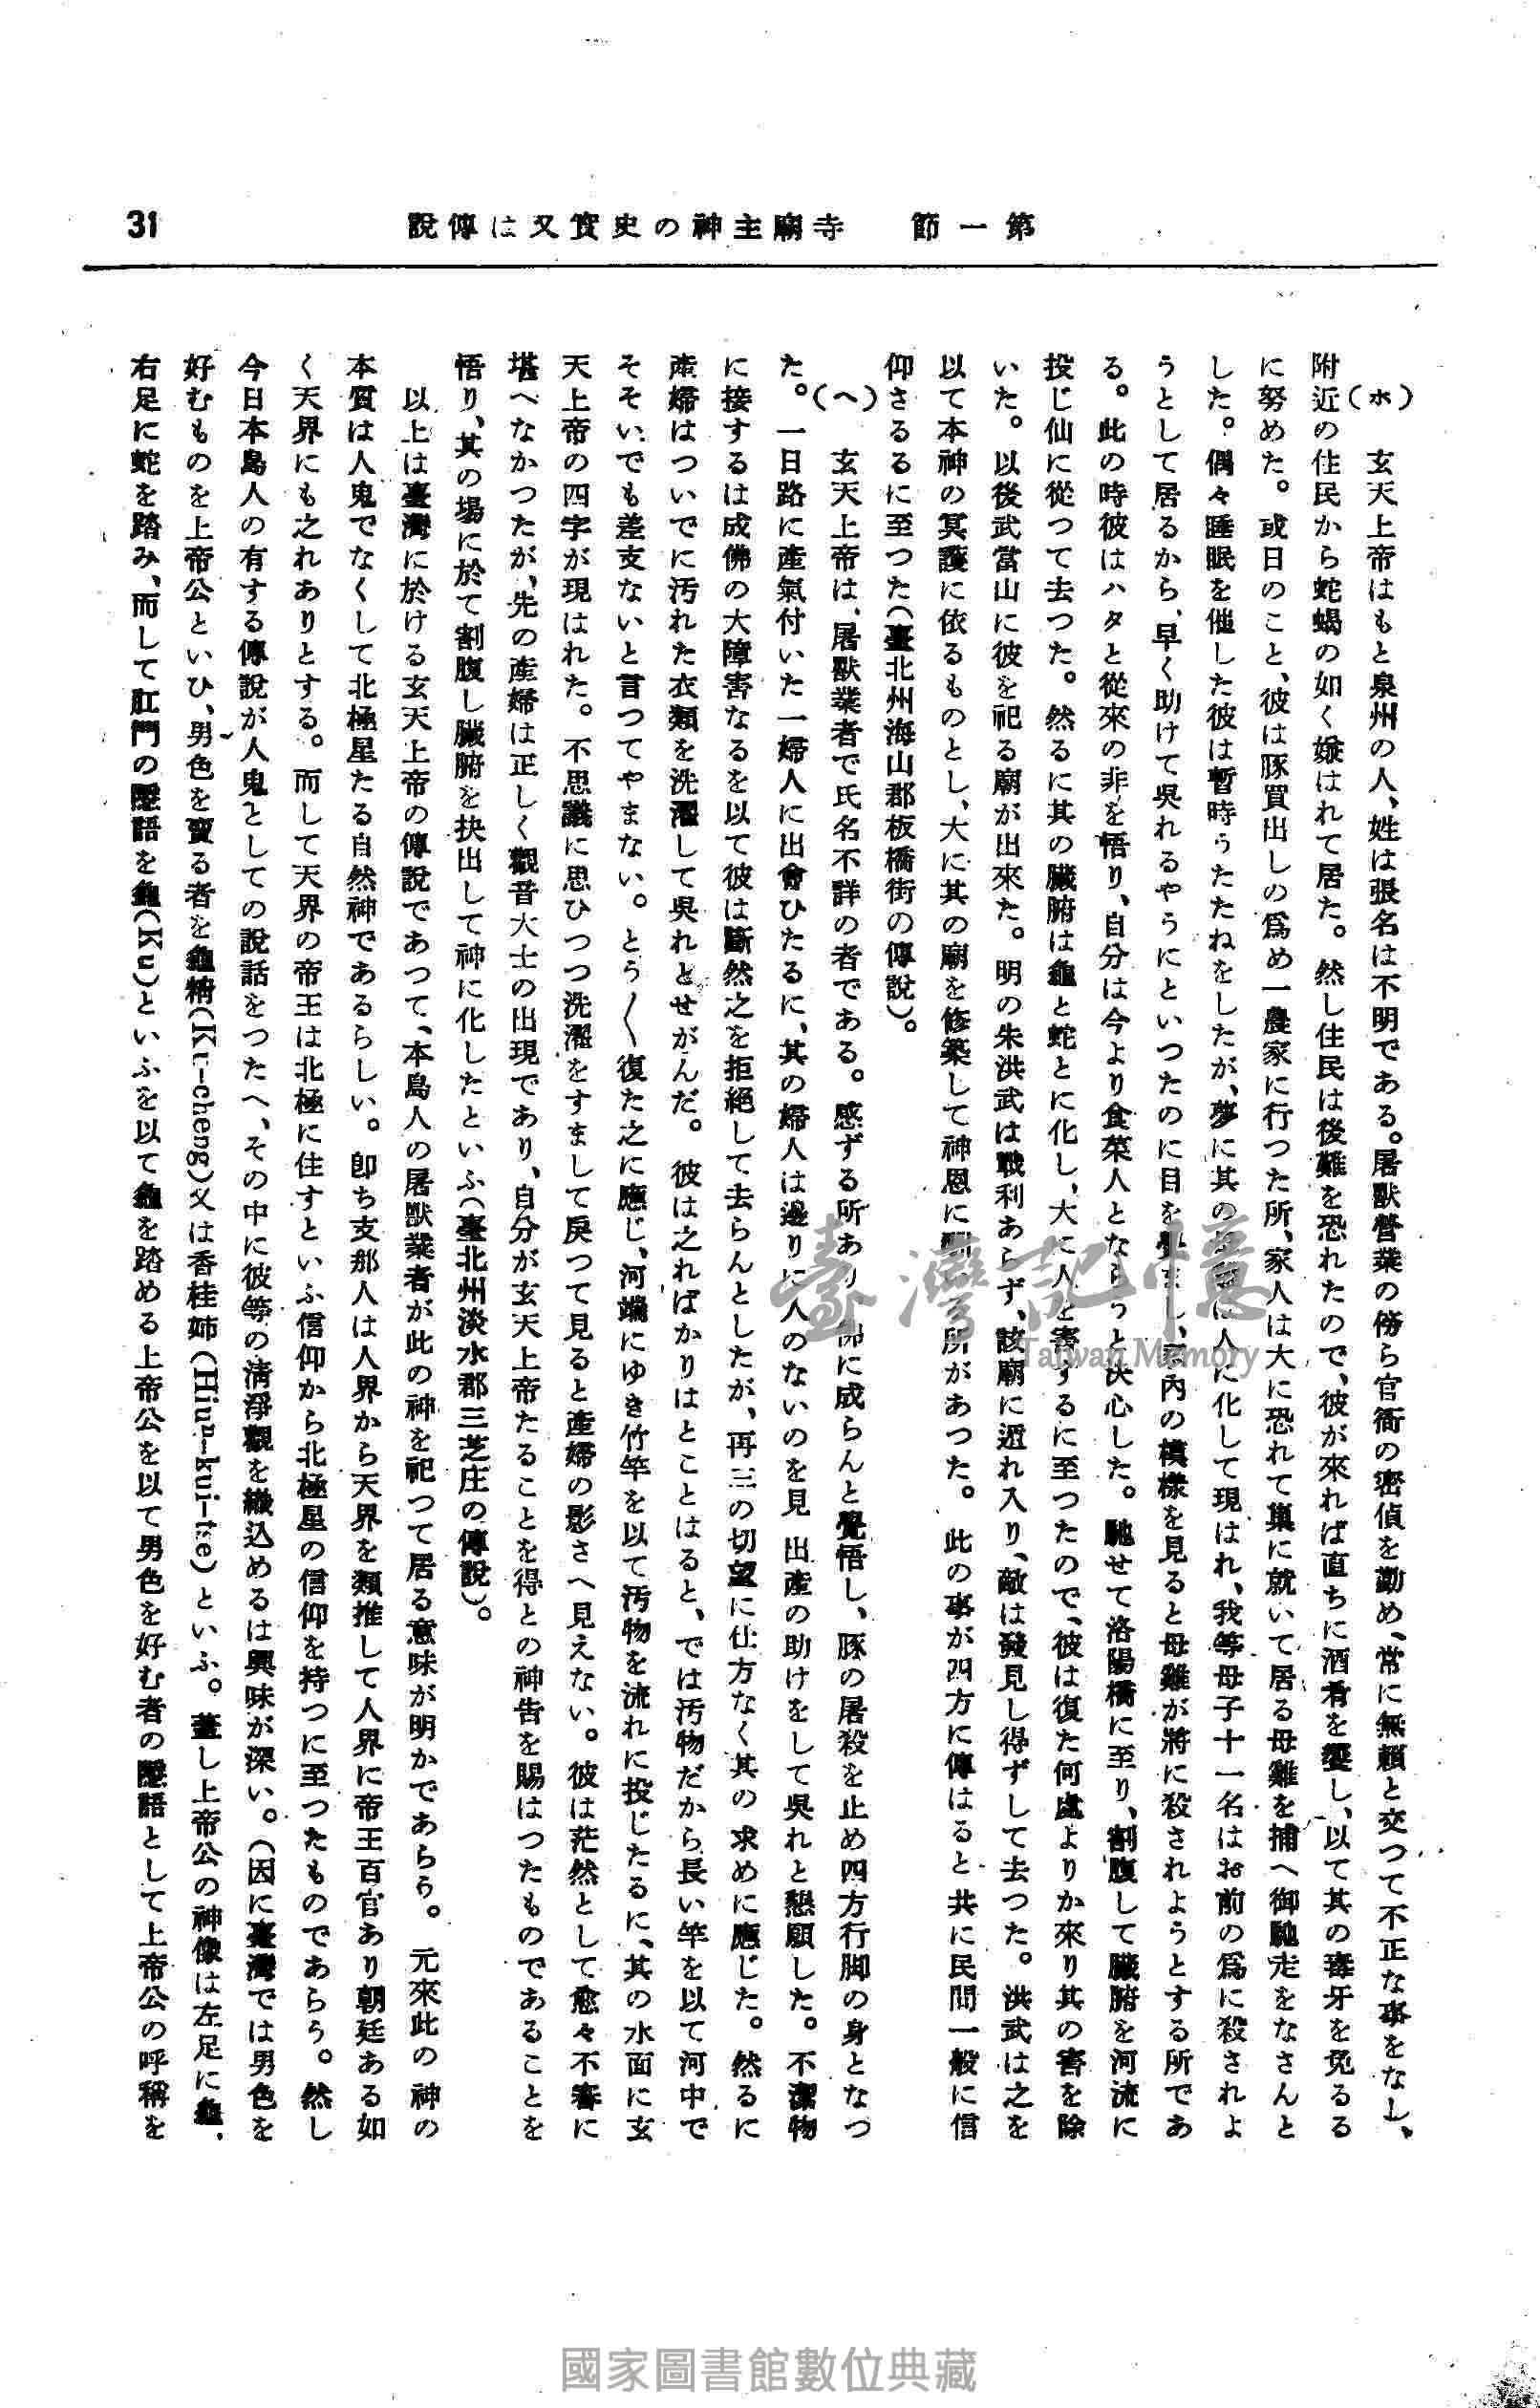 第一節　寺廟主神の史實又は傳說
31
（ホ）　玄天上帝はもと泉州の人、姓は張名は不明である。屠獸營業の傍ら官衙の密偵を勤め、常に無賴と交つて不正な事をなし、
附近の住民から蛇蝎の如く嫌はれて居た。然し住民は後難を恐れたので、彼が來れば直ちに酒肴を饗し、以て其の毒牙を免るる
に努めた。或日のこと、彼は豚買出しの爲め一農家に行つた所、家人は大に恐れて巢に就いて居る母雞を捕へ御馳走をなさんと
した。偶々睡眠を催した彼は暫時うたたねをしたが、夢に其の は人に化して現はれ、我等母子十一名はお前の爲に殺されよ
うとして居るから、早く助けて吳れるやうにといつたのに目を覺まし、家內の模樣を見ると母雞が將に殺されようとする所であ
る。此の時彼はハタと從來の非を悟り、自分は今より食菜人とならうと決心した。馳せて洛陽橋に至り、割腹して臟腑を河流に
投じ仙に從つて去つた。然るに其の臟腑は龜と蛇とに化し、大に人を害するに至つたので、彼は復た何處よりか來り其の害を除
いた。以後武當山に彼を祀る廟が出來た。明の朱洪武は戰利あらず、該廟に遁れ入り、敵は發見し得ずして去つた。洪武は之を
以て本神の冥護に依るものとし、大に其の廟を修築して神恩に る所があつた。此の事が四方に傳はると共に民間一般に信
仰さるるに至つた（臺北州海山郡板橋街の傳說）。
（ヘ）　玄天上帝は、屠獸業者で氏名不詳の者である。感ずる所あり 佛に成らんと覺悟し、豚の屠殺を止め四方行脚の身となつ
た。一日路に產氣付いた一婦人に出會ひたるに、其の婦人は邊りに人のないのを見 出產の助けをして吳れと懇願した。不潔物
に接するは成佛の大障害なるを以て彼は斷然之を拒絕して去らんとしたが、再三の切望に仕方なく其の求めに應じた。然るに
產婦はついでに汚れた衣類を洗濯して吳れとせがんだ。彼は之ればかりはとことはると、では汚物だから長い竿を以て河中で
そそいでも差支ないと言つてやまない。とう〱復た之に應じ、河端にゆき竹竿を以て汚物を流れに投じたるに、其の水面に玄
天上帝の四字が現はれた。不思議に思ひつつ洗濯をすまして戾つて見ると產婦の影さへ見えない。彼は茫然として愈々不審に
堪へなかつたが、先の產婦は正しく觀音大士の出現であり、自分が玄天上帝たることを得との神告を賜はつたものであることを
悟り、其の場に於て割腹し臟腑を抉出して神に化したといふ（臺北州淡水郡三芝庄の傳說）。
以上は臺灣に於ける玄天上帝の傳說であつて、本島人の屠獸業者が此の神を祀つて居る意味が明かであらう。元來此の神の
本質は人鬼でなくして北極星たる自然神であるらしい。卽ち支那人は人界から天界を類推して人界に帝王百官あり朝廷ある如
く天界にも之れありとする。而して天界の帝王は北極に住すといふ信仰から北極星の信仰を持つに至つたものであらう。然し
今日本島人の有する傳說が人鬼としての說話をつたへ、その中に彼等の淸淨觀を織込めるは興味が深い。（因に臺灣では男色を
好むものを上帝公といひ、男色を賣る者を龜精（Ku-cheng）又は香桂姉（Hiuⁿ-kui-tse）といふ。蓋し上帝公の神像は左足に龜、
右足に蛇を踏み、而して肛門の隱語を龜（Ku）といふを以て龜を踏める上帝公を以て男色を好む者の隱語として上帝公の呼稱を
臺灣記憶
Taiwan Memory
國家圖書館數位典藏